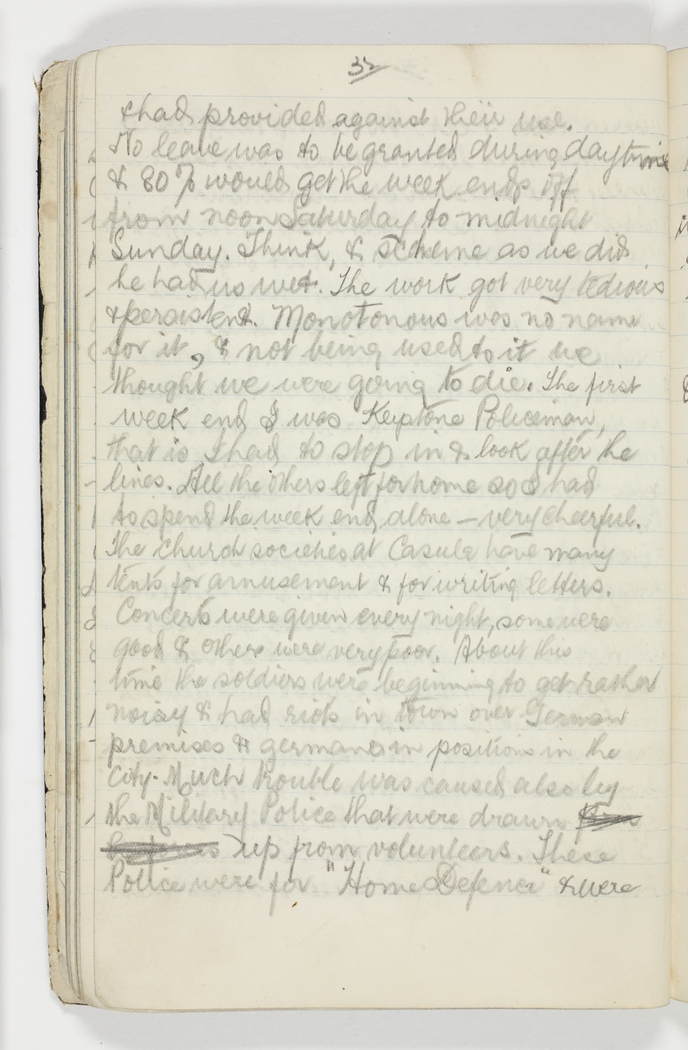 32
& had provided against their use.
No leave was to be granted during daytime
& 80% would get the week ends off
from noon Saturday to midnight
Sunday. Think, & scheme as we did
he had us wet. The work got very tedious
& persistent. Monotonous was no name
for it, & not being used to it we
thought we were going to die. The first
week end I was Keptone Policeman,
that is I had to stop in & look after the
lines. All the others left for home so I had
to spend the week end alone – very cheerful.
The church societies at Casula have many
tents for amusement & for writing letters.
Concerts were given every night, some were
good & others were very poor. About this
time the soldiers were beginning to get rather
noisy & had riots in town over German
premises & germans in positions in the
city. Much trouble was caused also by
the Military Police that were drawn
up from volunteers. These
Police were for "Home Defence" & were